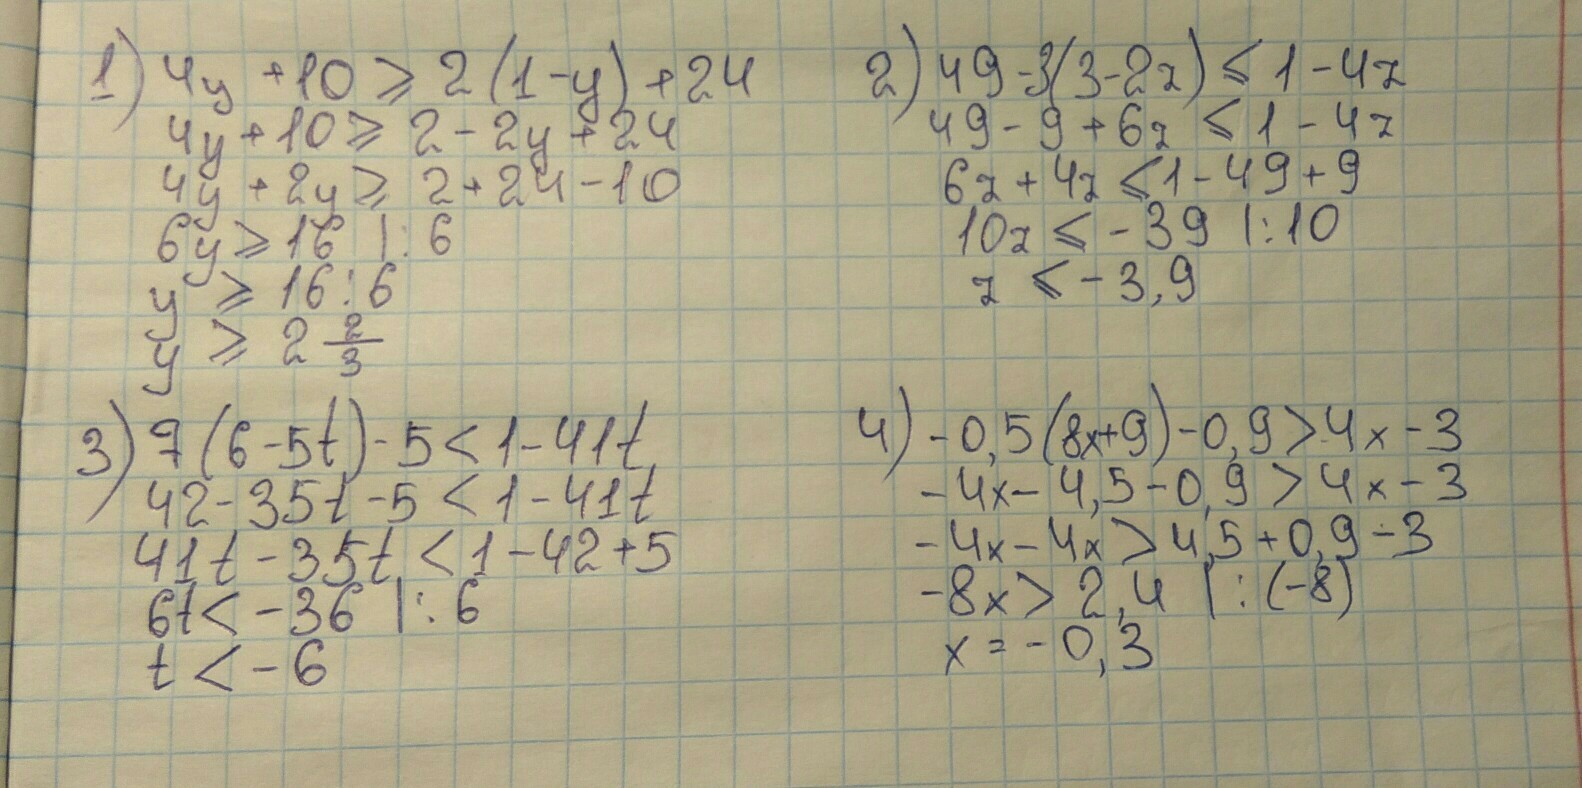 1) 4y + 10 ⩾ 2 (1 - y) + 24
4y + 10 ⩾ 2 - 2y + 24
4y + 2y ⩾ 2 + 24 - 10
6y ⩾ 16 |: 6
y ⩾ 16 : 6
y ⩾ 2 2/3
2) 49 - 3(3 - 2z) ⩽ 1 - 4z
49 - 9 + 6z ⩽ 1 - 4z
6z + 4z ⩽ 1 - 49 + 9
10z ⩽ - 39 |: 10
z ⩽ - 3,9
3) 7 (6 - 5t) - 5 < 1 - 41t
42 - 35t - 5 < 1 - 41t
41t - 35t < 1 - 42 + 5
6t < - 36 |: 6
t < - 6
4) - 0,5 (8x + 9) - 0,9 > 4x - 3
- 4x - 4,5 - 0,9 > 4x - 3
- 4x - 4x > 4,5 + 0,9 - 3
- 8x > 2,4 |: (-8)
x = - 0,3